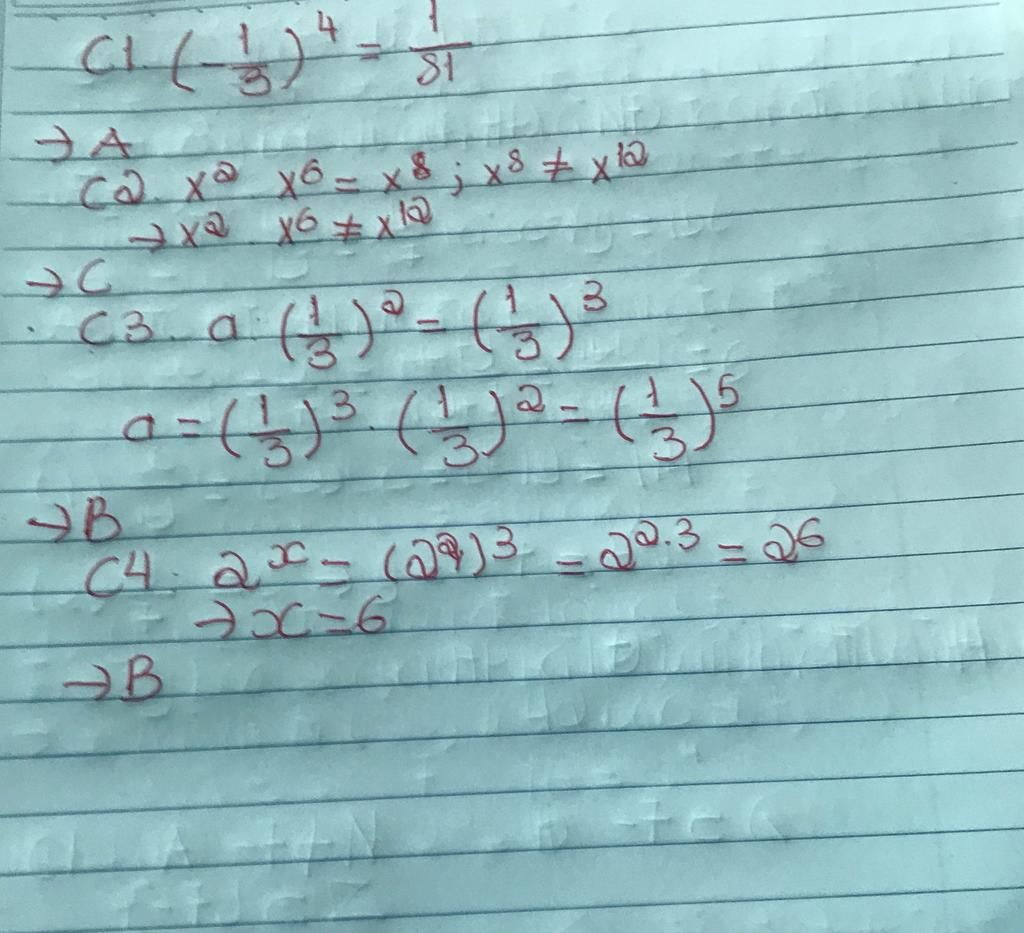 C1. (-1/3)^4 = 1/81
→ A
C2. x^2 x^6 = x^8 ; x^8 ≠ x^12
→ x^2 x^6 ≠ x^12
→ C
C3. a : (1/3)^2 = (1/3)^3
a = (1/3)^3 . (1/3)^2 = (1/3)^5
→ B
C4. 2^x = (2^2)^3 = 2^2.3 = 2^6
→ x = 6
→ B